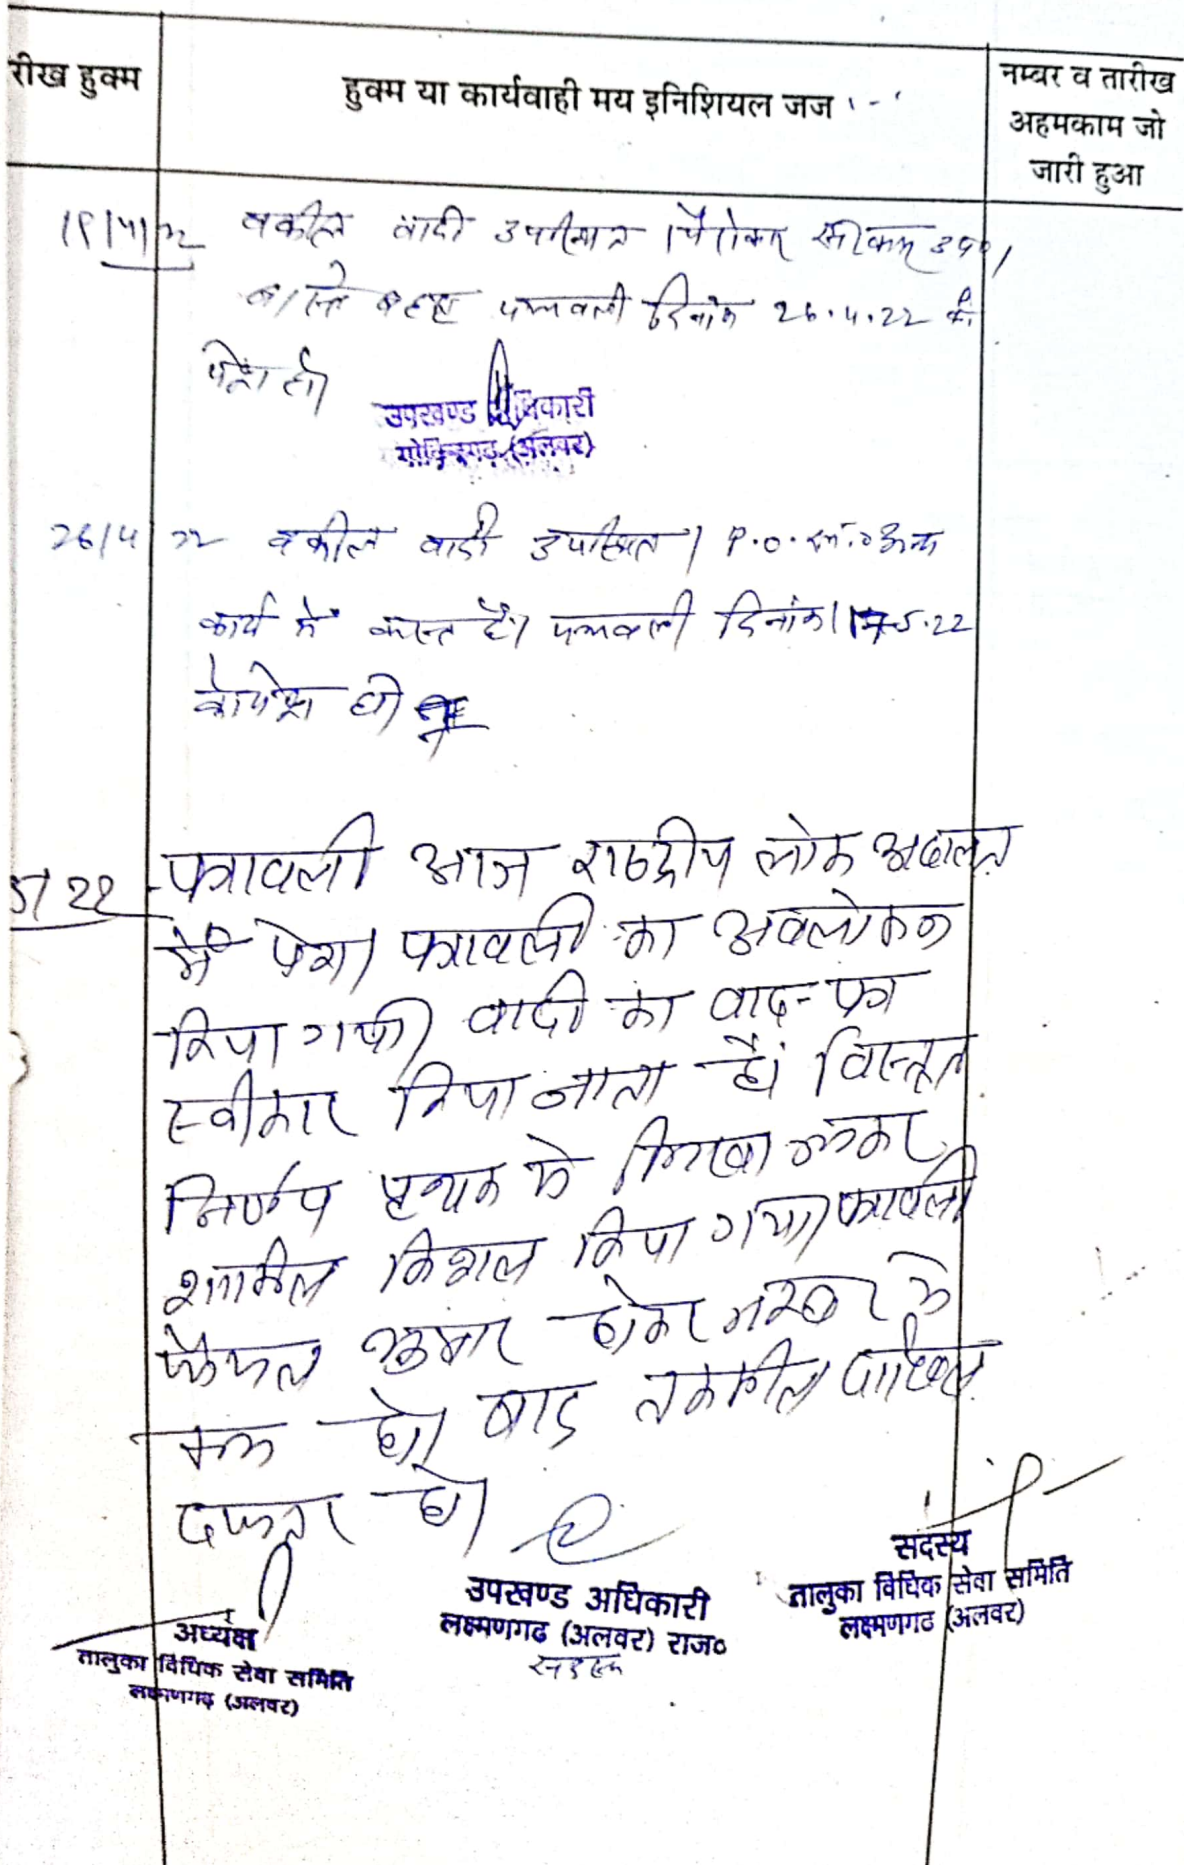 रीख हुक्म
हुक्म या कार्यवाही मय इनिशियल जज
नम्बर व तारीख
अहमकाम जो
जारी हुआ
19/4/22 वकील वादी उपस्थित। पैरोकार सरकार उप०।
वास्ते बहस पत्रावली दिनांक 26.4.22 को
पेश हो।
उपखण्ड अधिकारी
गोविन्दगढ़ (अलवर)
26/4/22 वकील वादी उपस्थित। P.O. सा० अन्य
कार्य में व्यस्त है। पत्रावली दिनांक 5.22
को पेश हो।
5/22 पत्रावली आज राष्ट्रीय लोक अदालत
में पेश। पत्रावली का अवलोकन
किया गया। वादी का वाद-पत्र
स्वीकार किया जाता है। विस्तृत
निर्णय पृथक से लिखा जाकर
शामिल मिशल किया गया। पत्रावली
फैसल शुमार होकर नम्बर से
कम हो। बाद तकमील दाखिल
दफ्तर हो।
सदस्य
तालुका विधिक सेवा समिति
लक्ष्मणगढ (अलवर)
उपखण्ड अधिकारी
लक्ष्मणगढ (अलवर) राज०
सदस्य
अध्यक्ष
तालुका विधिक सेवा समिति
लक्ष्मणगढ़ (अलवर)